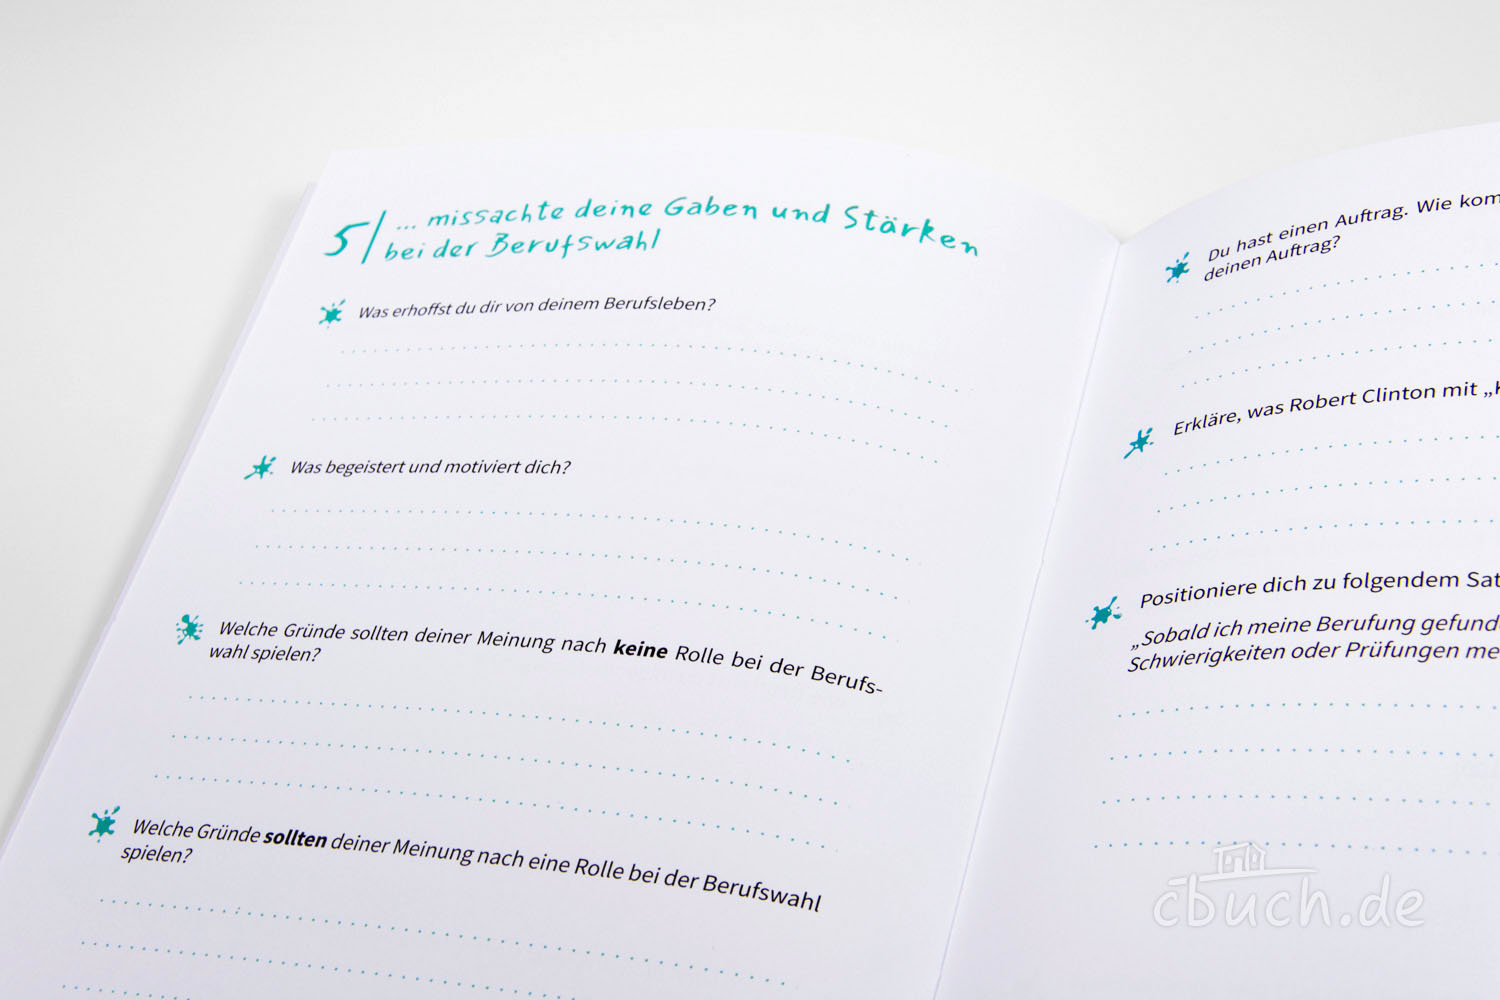 5/ ... missachte deine Gaben und Stärken
bei der Berufswahl
Was erhoffst du dir von deinem Berufsleben?
Was begeistert und motiviert dich?
Welche Gründe sollten deiner Meinung nach keine Rolle bei der Berufs-
wahl spielen?
Welche Gründe sollten deiner Meinung nach eine Rolle bei der Berufswahl
spielen?
Du hast einen Auftrag. Wie kom
deinen Auftrag?
Erkläre, was Robert Clinton mit „K
Positioniere dich zu folgendem Sat
„Sobald ich meine Berufung gefund
Schwierigkeiten oder Prüfungen me
cbuch.de